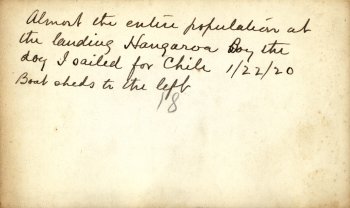 Almost the entire population at
the landing Hangaroa Bay the
day I sailed for Chile 1/22/20
Boat sheds to the left
18